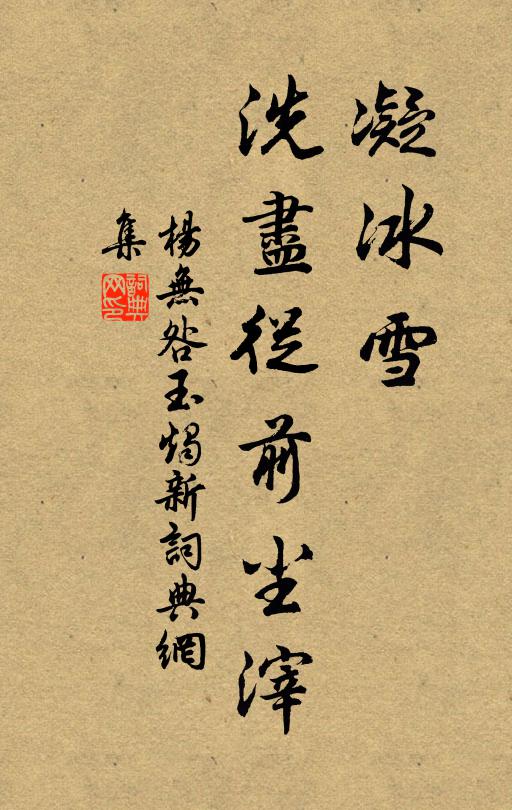 凝冰雪
洗盡從前尘滓
楊無咎玉燭新詞典網
集
詞典
网印